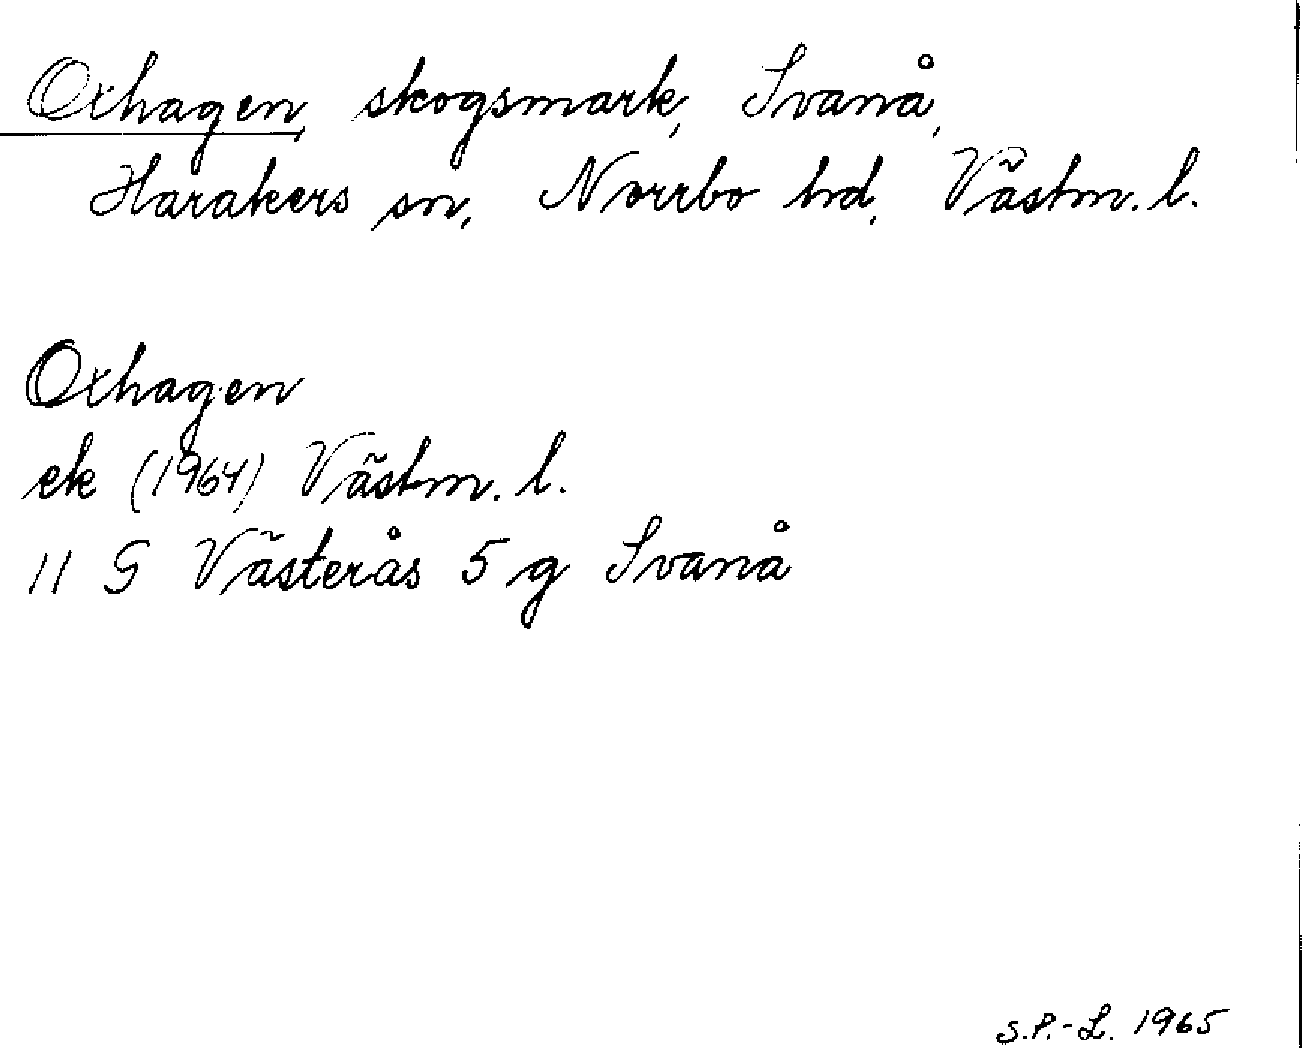 Oxhagen, skogsmark, Svanå,
Harakers sn, Norrbo hd, Västm. l.
Oxhagen
ek (1964) Västm. l.
11 G Västerås 5 g Svanå
S.P.-L. 1965